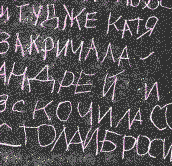 И ТУДЖЕ КАТЯ
ЗАКРИЧАЛА -
АНДРЕЙ И
ВСКОЧИЛА СО
СТОЛАИБРОСИ